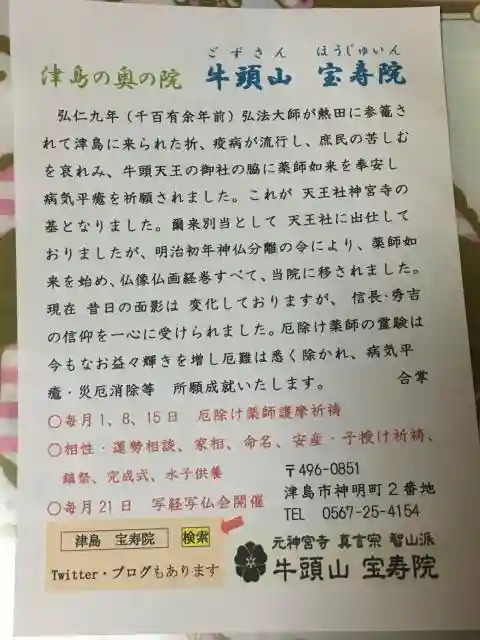 ごずさん ほうじゅいん
津島の奥の院 牛頭山 宝寿院
弘仁九年（千百有余年前）弘法大師が熱田に参篭さ
れて津島に来られた折、疫病が流行し、庶民の苦しむ
を哀れみ、牛頭天王の御社の脇に薬師如来を奉安し
病気平癒を祈願されました。これが 天王社神宮寺の
基となりました。爾来別当として 天王社に出仕して
おりましたが、明治初年神仏分離の令により、薬師如
来を始め、仏像仏画経巻すべて、当院に移されました。
現在 昔日の面影は 変化しておりますが、 信長・秀吉
の信仰を一心に受けられました。厄除け薬師の霊験は
今もなお益々輝きを増し厄難は悉く除かれ、病気平
癒・災厄消除等 所願成就いたします。 合掌
○毎月1、8、15日 厄除け薬師護摩祈祷
○相性・運勢相談、家相、命名、安産・子授け祈祷、
鎮祭、完成式、水子供養
○毎月21日 写経写仏会開催
〒496-0851
津島市神明町2番地
TEL 0567-25-4154
津島 宝寿院 検索
Twitter・ブログもあります
元神宮寺 真言宗 智山派
牛頭山 宝寿院